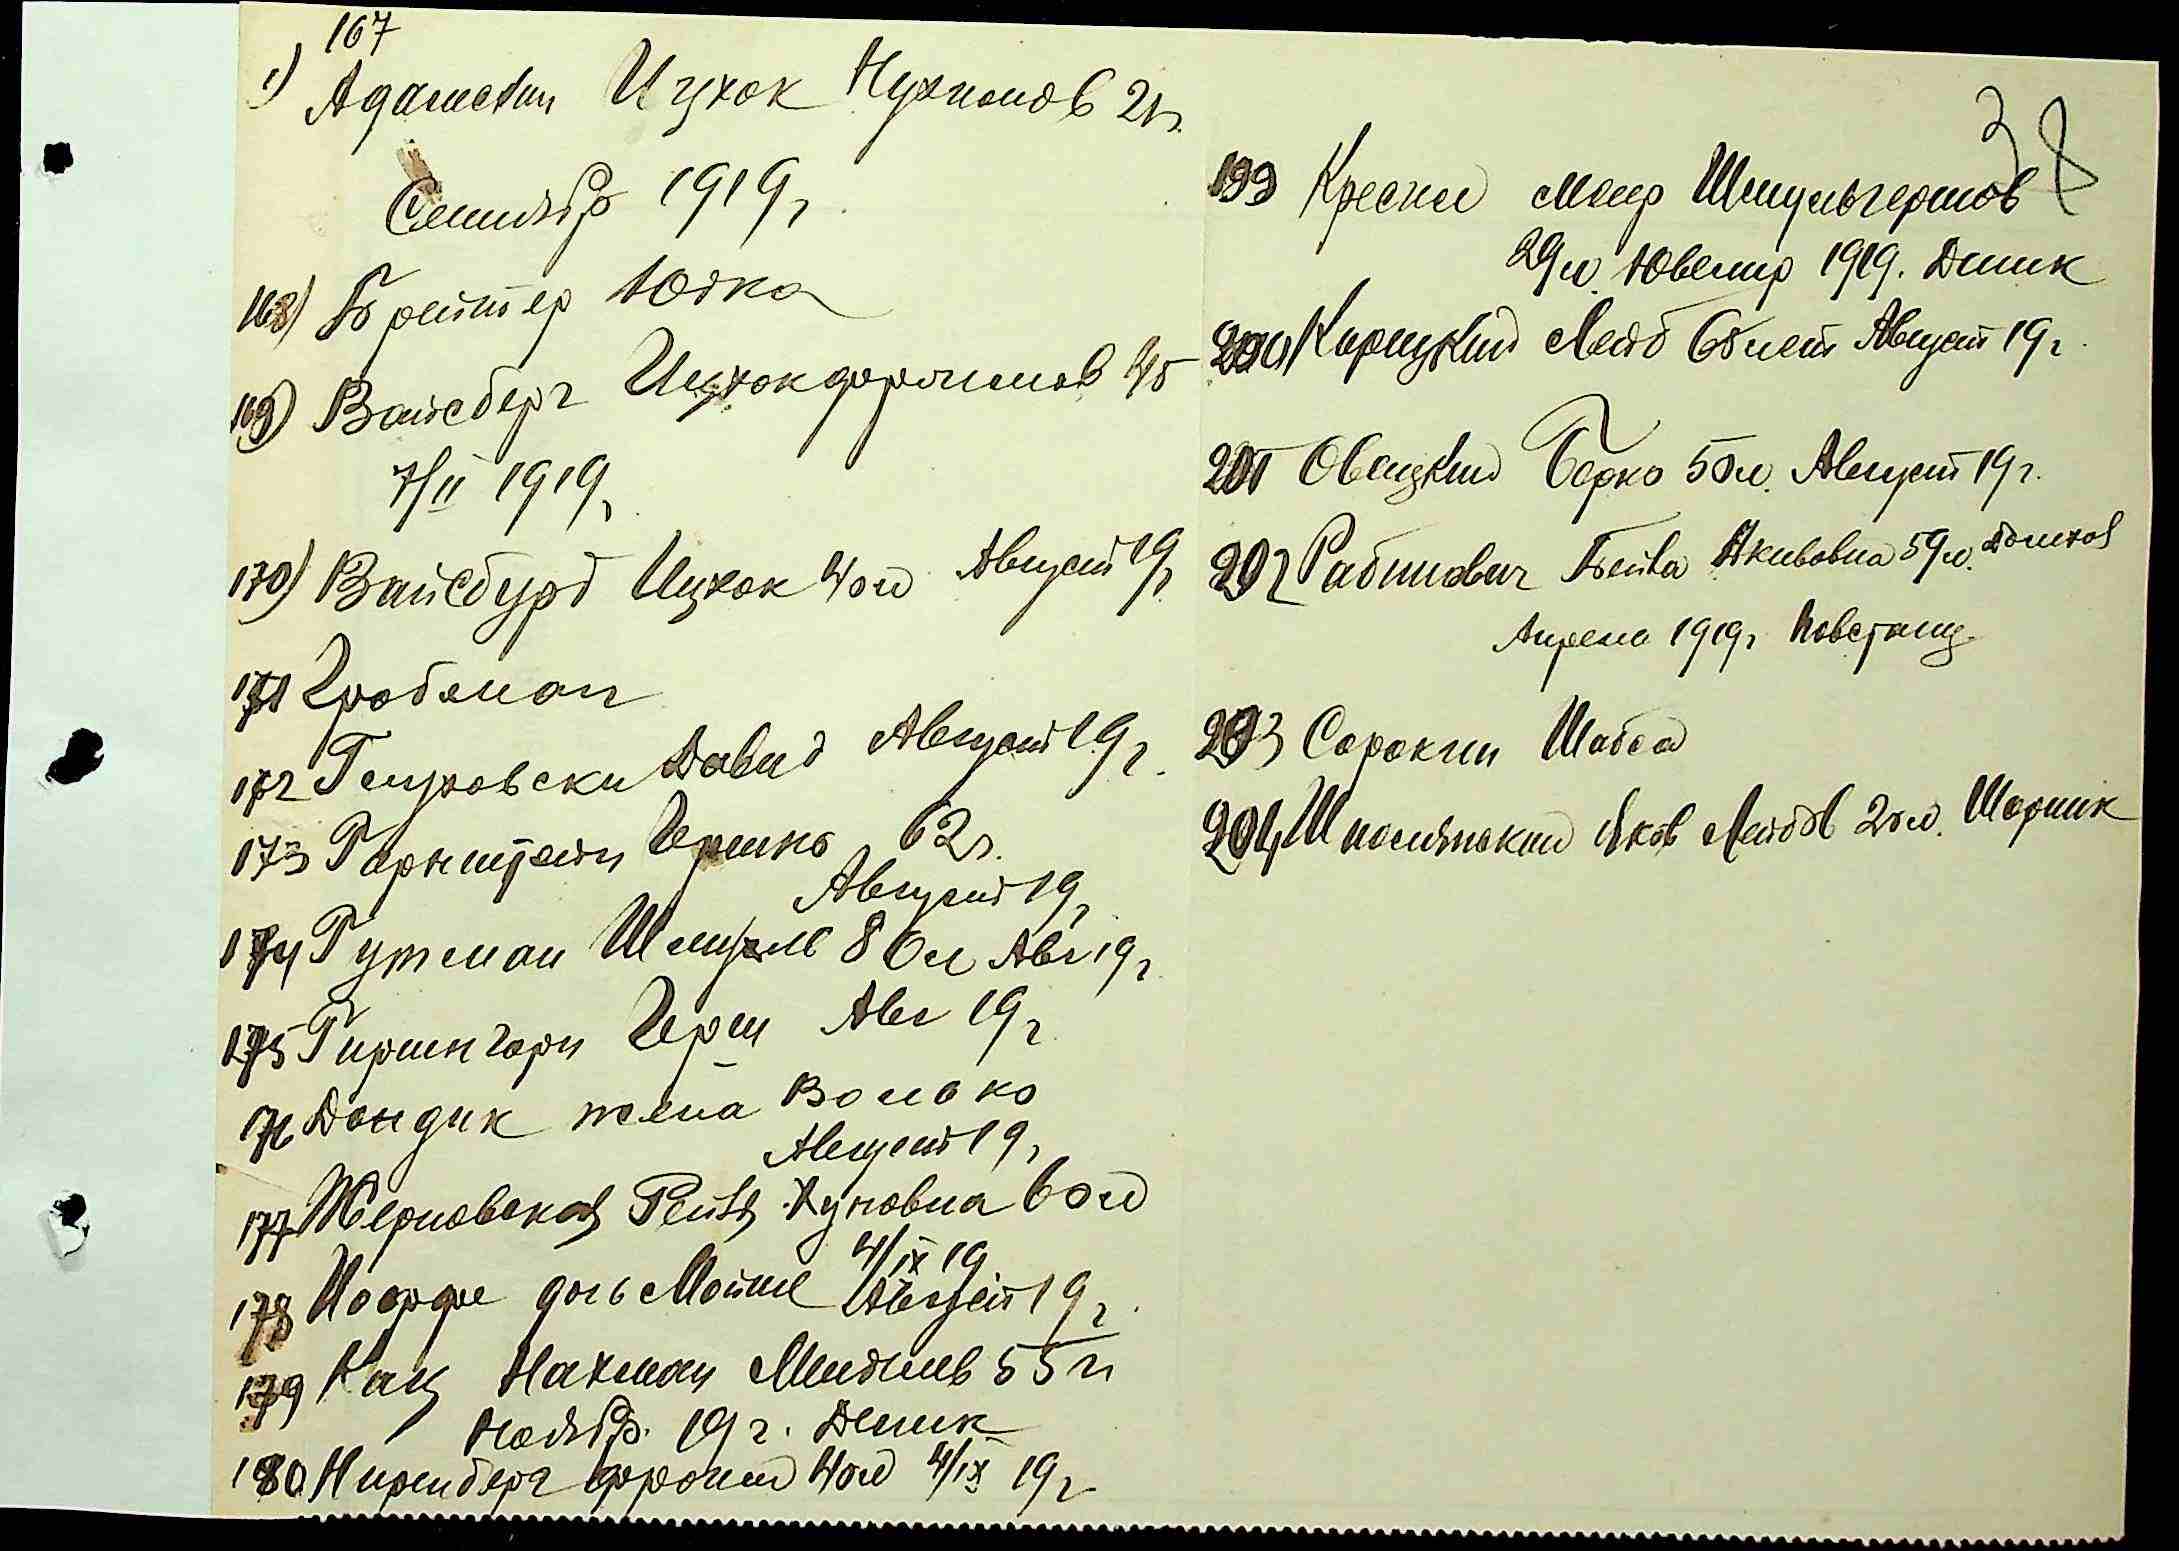 167
1) Адамский Ицхок Нухимов 21г.
Сентябр 1919г
168) Брейтер Юдко
169) Вайсберг Ицхок фроимов 45
7/II 1919г
170) Вайсбурд Ицхок 40л Август 19г
171 Гройсман
172 Гетровски Давид Август 19г.
173 Горнштейн Гершко 62г.
Август 19г
174 Гутман Шмуль 80л Авг 19г
175 Гиршгорн Герш Авг 19г
176 Дондик жена Волько
Август 19г
177 Жерновская Рейзя Хуновна 60л
4/IX 19
178 Иоффе дочь Мойше Август 19г.
179 Кац Нахман Мендилев 55л
Ноябр. 19г. Деник
180 Ниренберг фроим 40л 4/IX 19г
38
199 Кресни Меир Шмульгершов
29л. Ювелир 1919. Деник
200 Корицкий Лейб 68 лет Август 19г.
201 Овецкий Берко 50л. Август 19г.
202 Рабинович Бейла Акивовна 59л. Домхоз
Апрель 1919г. Повстанц.
203 Сорокин Шабса
204 Шполянский Яков Лейбов 20л. Шорник